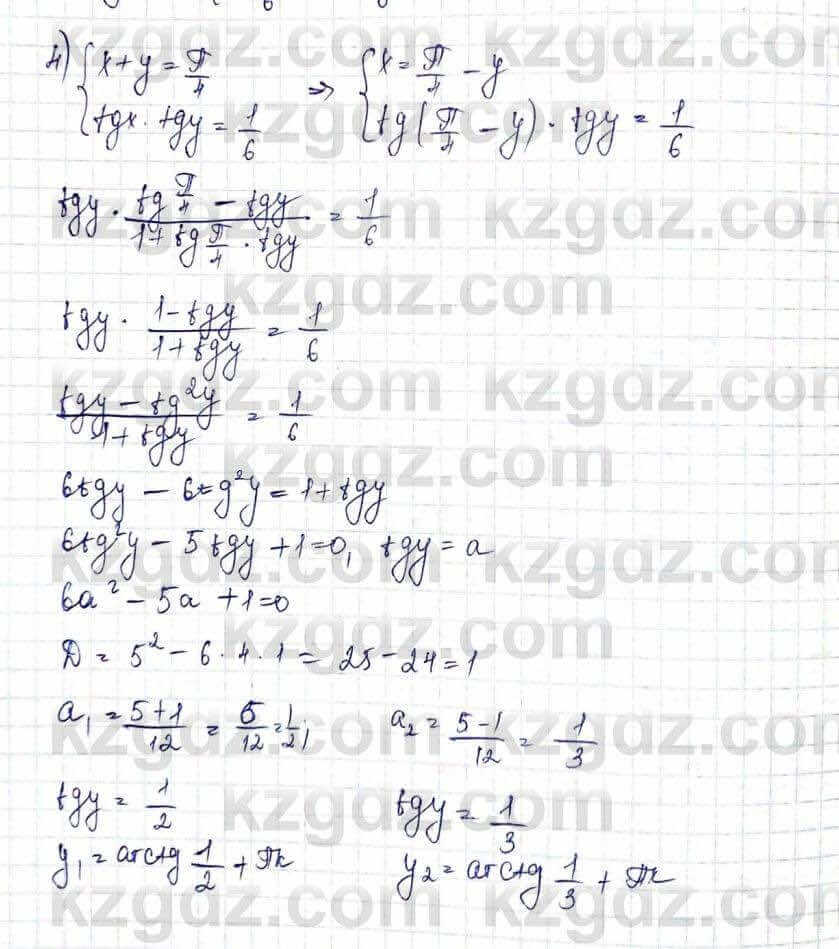 4) { x + y = π/4 ⇒ { x = π/4 − y
{ tgx · tgy = 1/6 { tg(π/4 − y) · tgy = 1/6
tgy · (tg π/4 − tgy)/(1 + tg π/4 · tgy) = 1/6
tgy · (1 − tgy)/(1 + tgy) = 1/6
(tgy − tg²y)/(1 + tgy) = 1/6
6tgy − 6tg²y = 1 + tgy
6tg²y − 5tgy + 1 = 0, tgy = a
6a² − 5a + 1 = 0
D = 5² − 6 · 4 · 1 = 25 − 24 = 1
a₁ = (5+1)/12 = 6/12 = 1/2; a₂ = (5−1)/12 = 1/3
tgy = 1/2 tgy = 1/3
y₁ = arctg 1/2 + πk y₂ = arctg 1/3 + πk
kzgdz.com